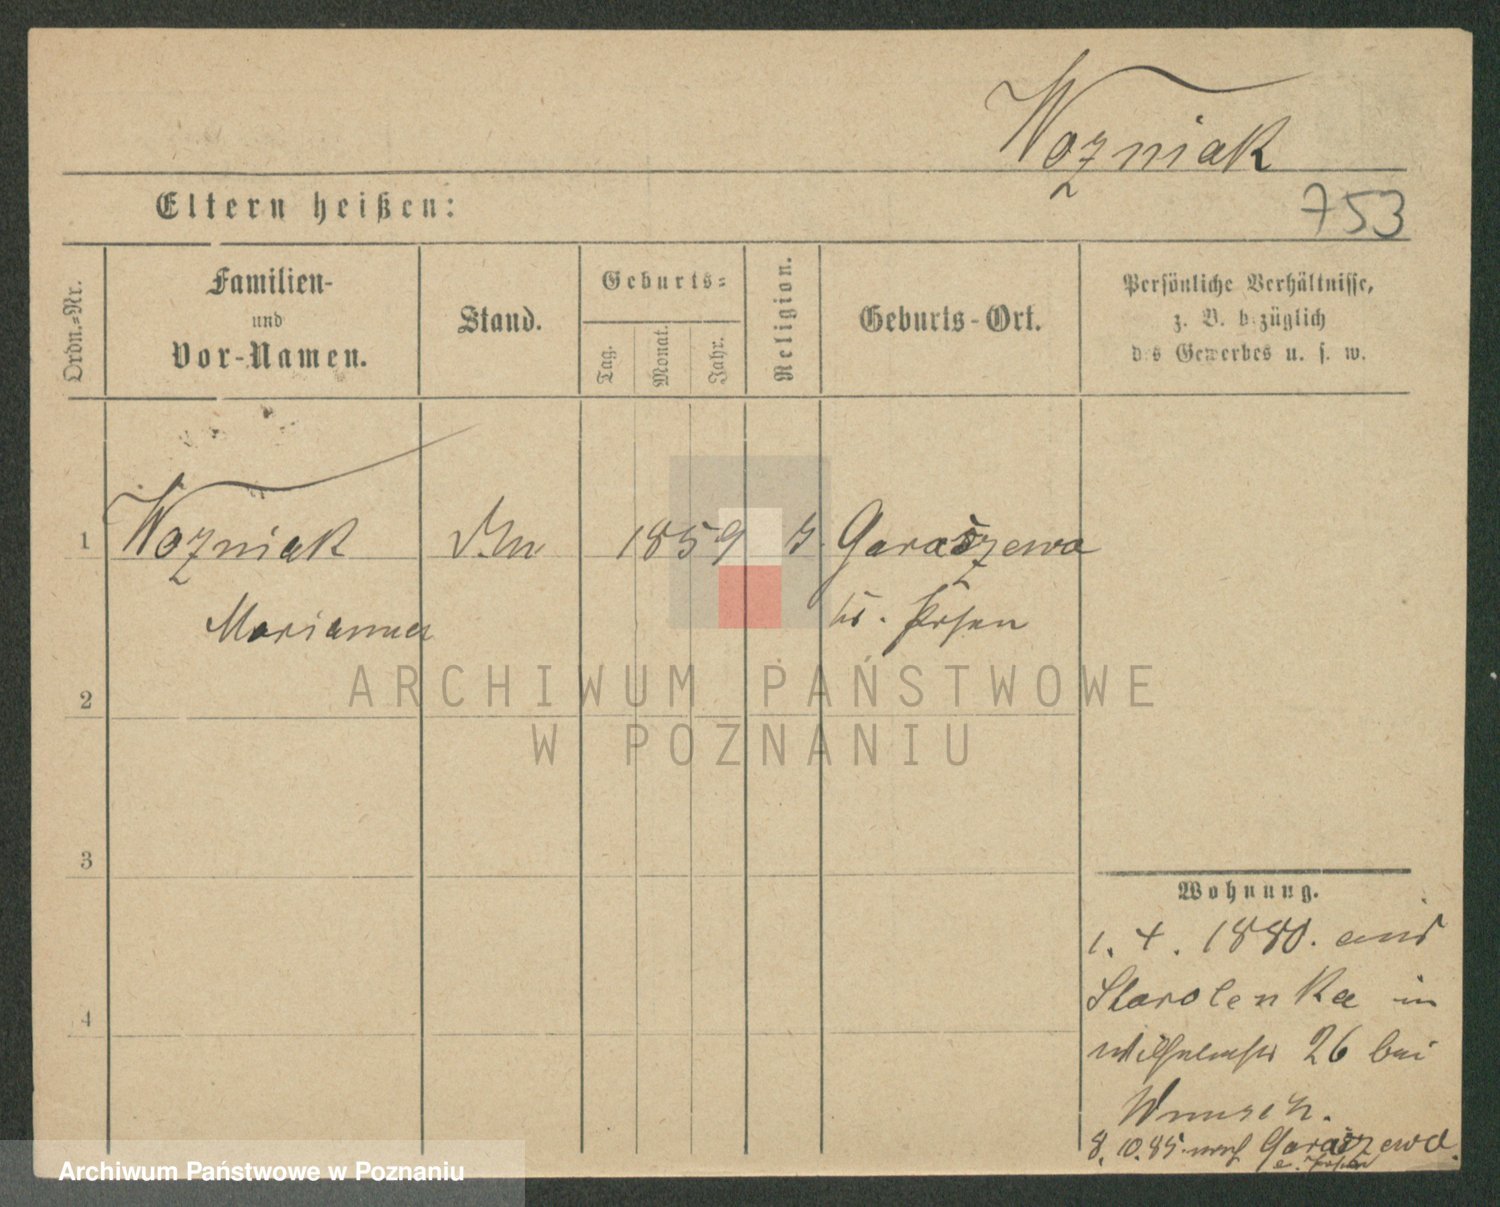 Wozniak
753
Eltern heißen:
Ordn.-Nr.
Familien-
und
Vor-Namen.
Stand.
Geburts-
Tag.
Monat.
Jahr.
Religion.
Geburts-Ort.
Persönliche Verhältnisse,
z. B. bezüglich
des Gewerbes u. s. w.
1 Wozniak 1859 Garaszewo
Marianna Posen
ARCHIWUM PAŃSTWOWE
W POZNANIU
2
3
4
Wohnung.
1. 4. 1880. aus
Starolenka in
Wilhelmstr 26 bei
Wunsch.
8. 10. 85 nach Garaszewo
Posen
Archiwum Państwowe w Poznaniu